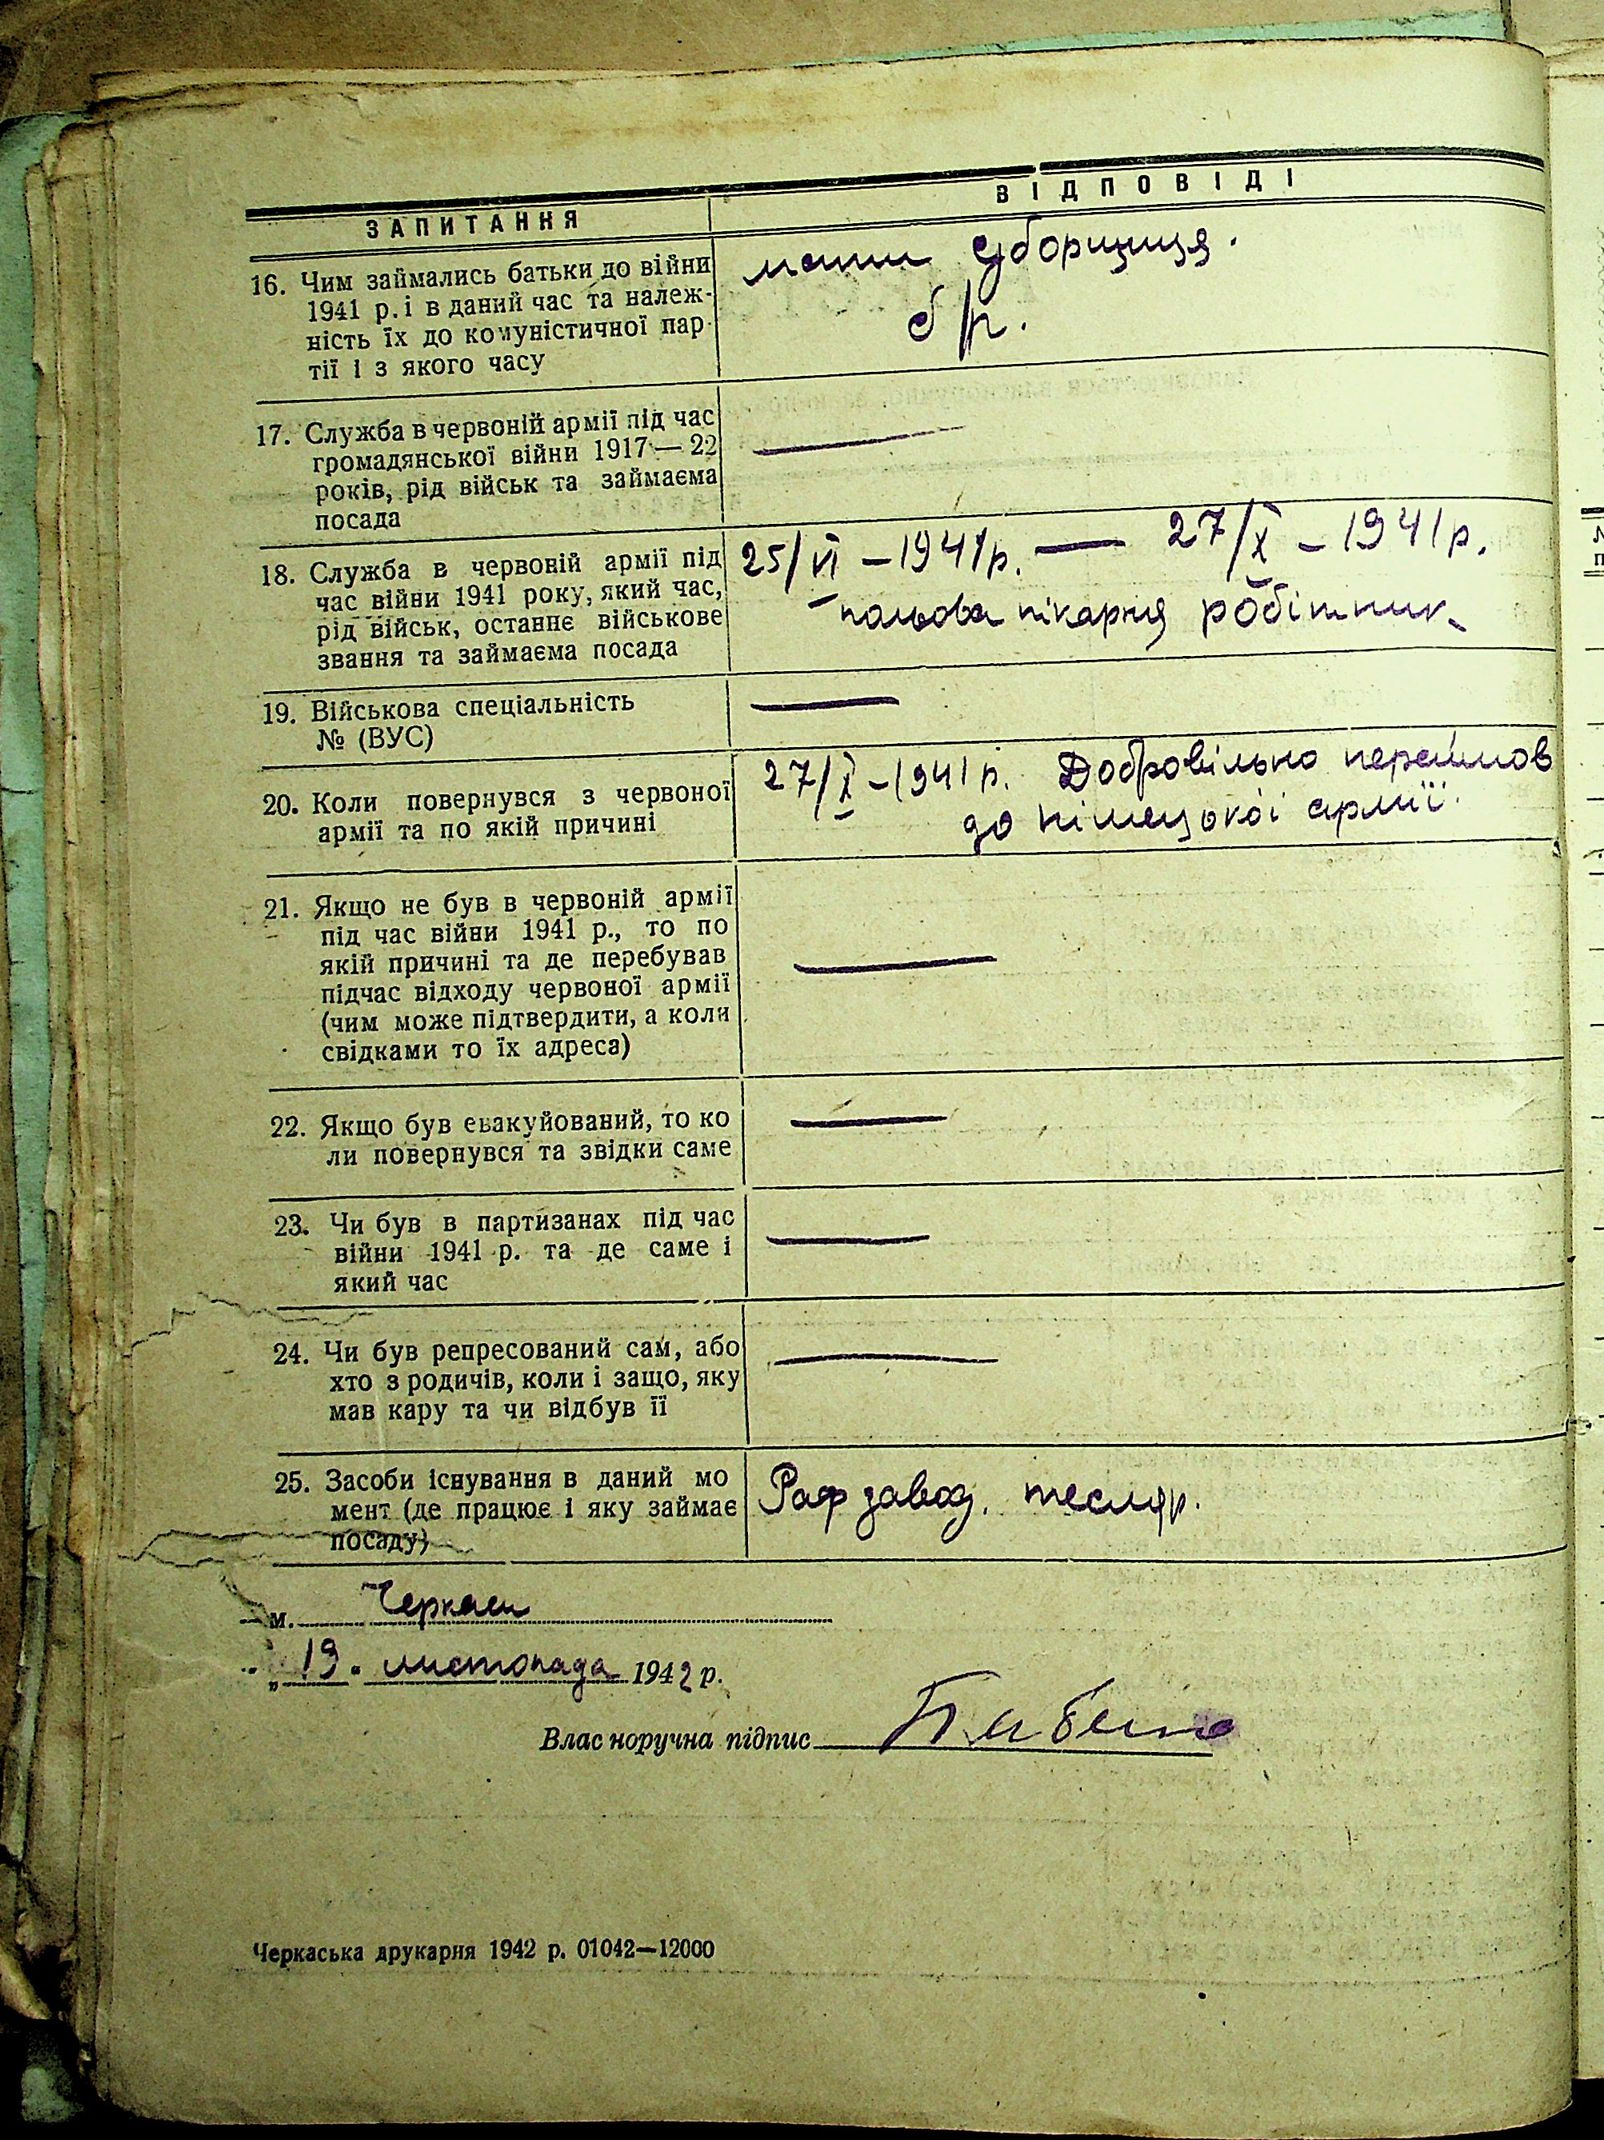 ЗАПИТАННЯ
ВІДПОВІДІ
16. Чим займались батьки до війни
1941 р. і в даний час та належ-
ність їх до комуністичної пар-
тії і з якого часу
мати уборщиця.
б/п.
17. Служба в червоній армії під час
громадянської війни 1917 — 22
років, рід військ та займаєма
посада
—
18. Служба в червоній армії під
час війни 1941 року, який час,
рід військ, останнє військове
звання та займаєма посада
25/VI – 1941 р. — 27/X – 1941 р.
польова пікарня робітник
19. Військова спеціальність
№ (ВУС)
—
20. Коли повернувся з червоної
армії та по якій причині
27/X – 1941 р. Добровільно перейшов
до німецької армії.
21. Якщо не був в червоній армії
під час війни 1941 р., то по
якій причині та де перебував
підчас відходу червоної армії
(чим може підтвердити, а коли
свідками то їх адреса)
—
22. Якщо був евакуйований, то ко
ли повернувся та звідки саме
—
23. Чи був в партизанах під час
війни 1941 р. та де саме і
який час
—
24. Чи був репресований сам, або
хто з родичів, коли і защо, яку
мав кару та чи відбув її
—
25. Засоби існування в даний мо
мент (де працює і яку займає
посаду)
Раф завод. тесляр.
м. Черкаси
„ 19. листопада 1942 р.
Влас норучна підпис
Черкаська друкарня 1942 р. 01042—12000